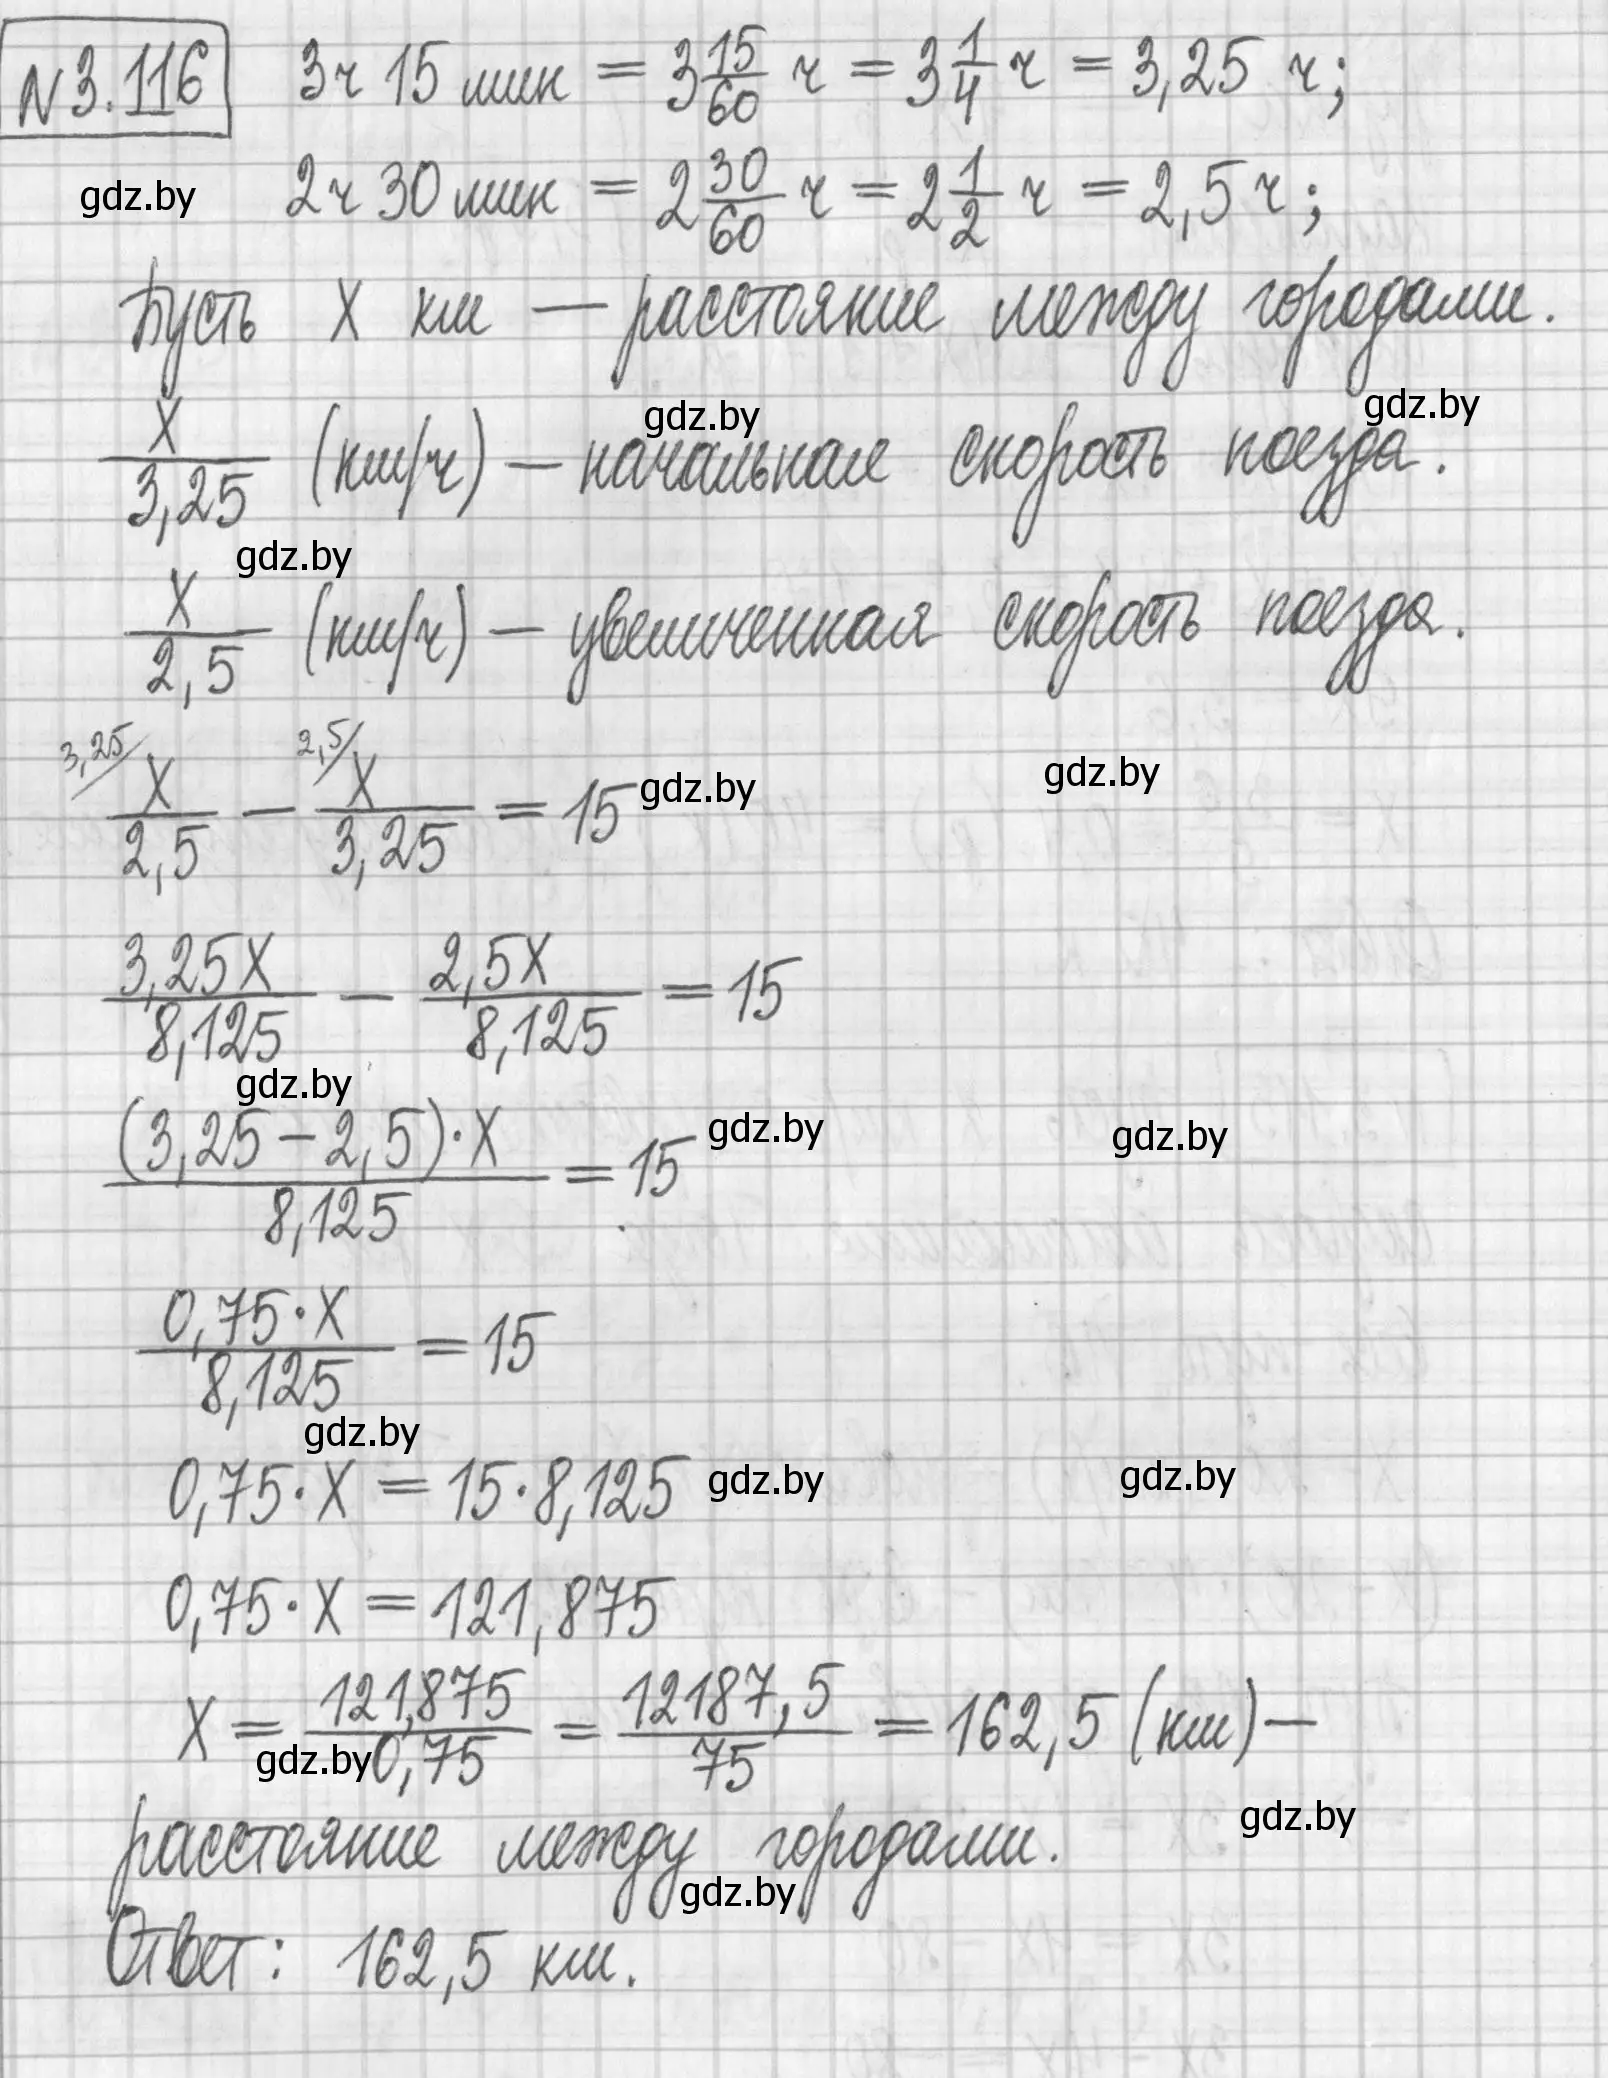 N 3.116 3ч 15 мин = 3 15/60 ч = 3 1/4 ч = 3,25 ч;
gdz.by 2ч 30 мин = 2 30/60 ч = 2 1/2 ч = 2,5 ч;
Пусть х км — расстояние между городами.
gdz.by gdz.by
х/3,25 (км/ч) — начальная скорость поезда.
gdz.by
х/2,5 (км/ч) — увеличенная скорость поезда.
3,25/ х/2,5 − 2,5/ х/3,25 = 15 gdz.by gdz.by
3,25х/8,125 − 2,5х/8,125 = 15
gdz.by
(3,25 − 2,5)·х/8,125 = 15 gdz.by gdz.by
0,75·х/8,125 = 15
gdz.by
0,75·х = 15·8,125 gdz.by gdz.by
0,75·х = 121,875
х = 121,875/0,75 = 12187,5/75 = 162,5 (км) —
gdz.by gdz.by
расстояние между городами.
gdz.by
Ответ: 162,5 км.